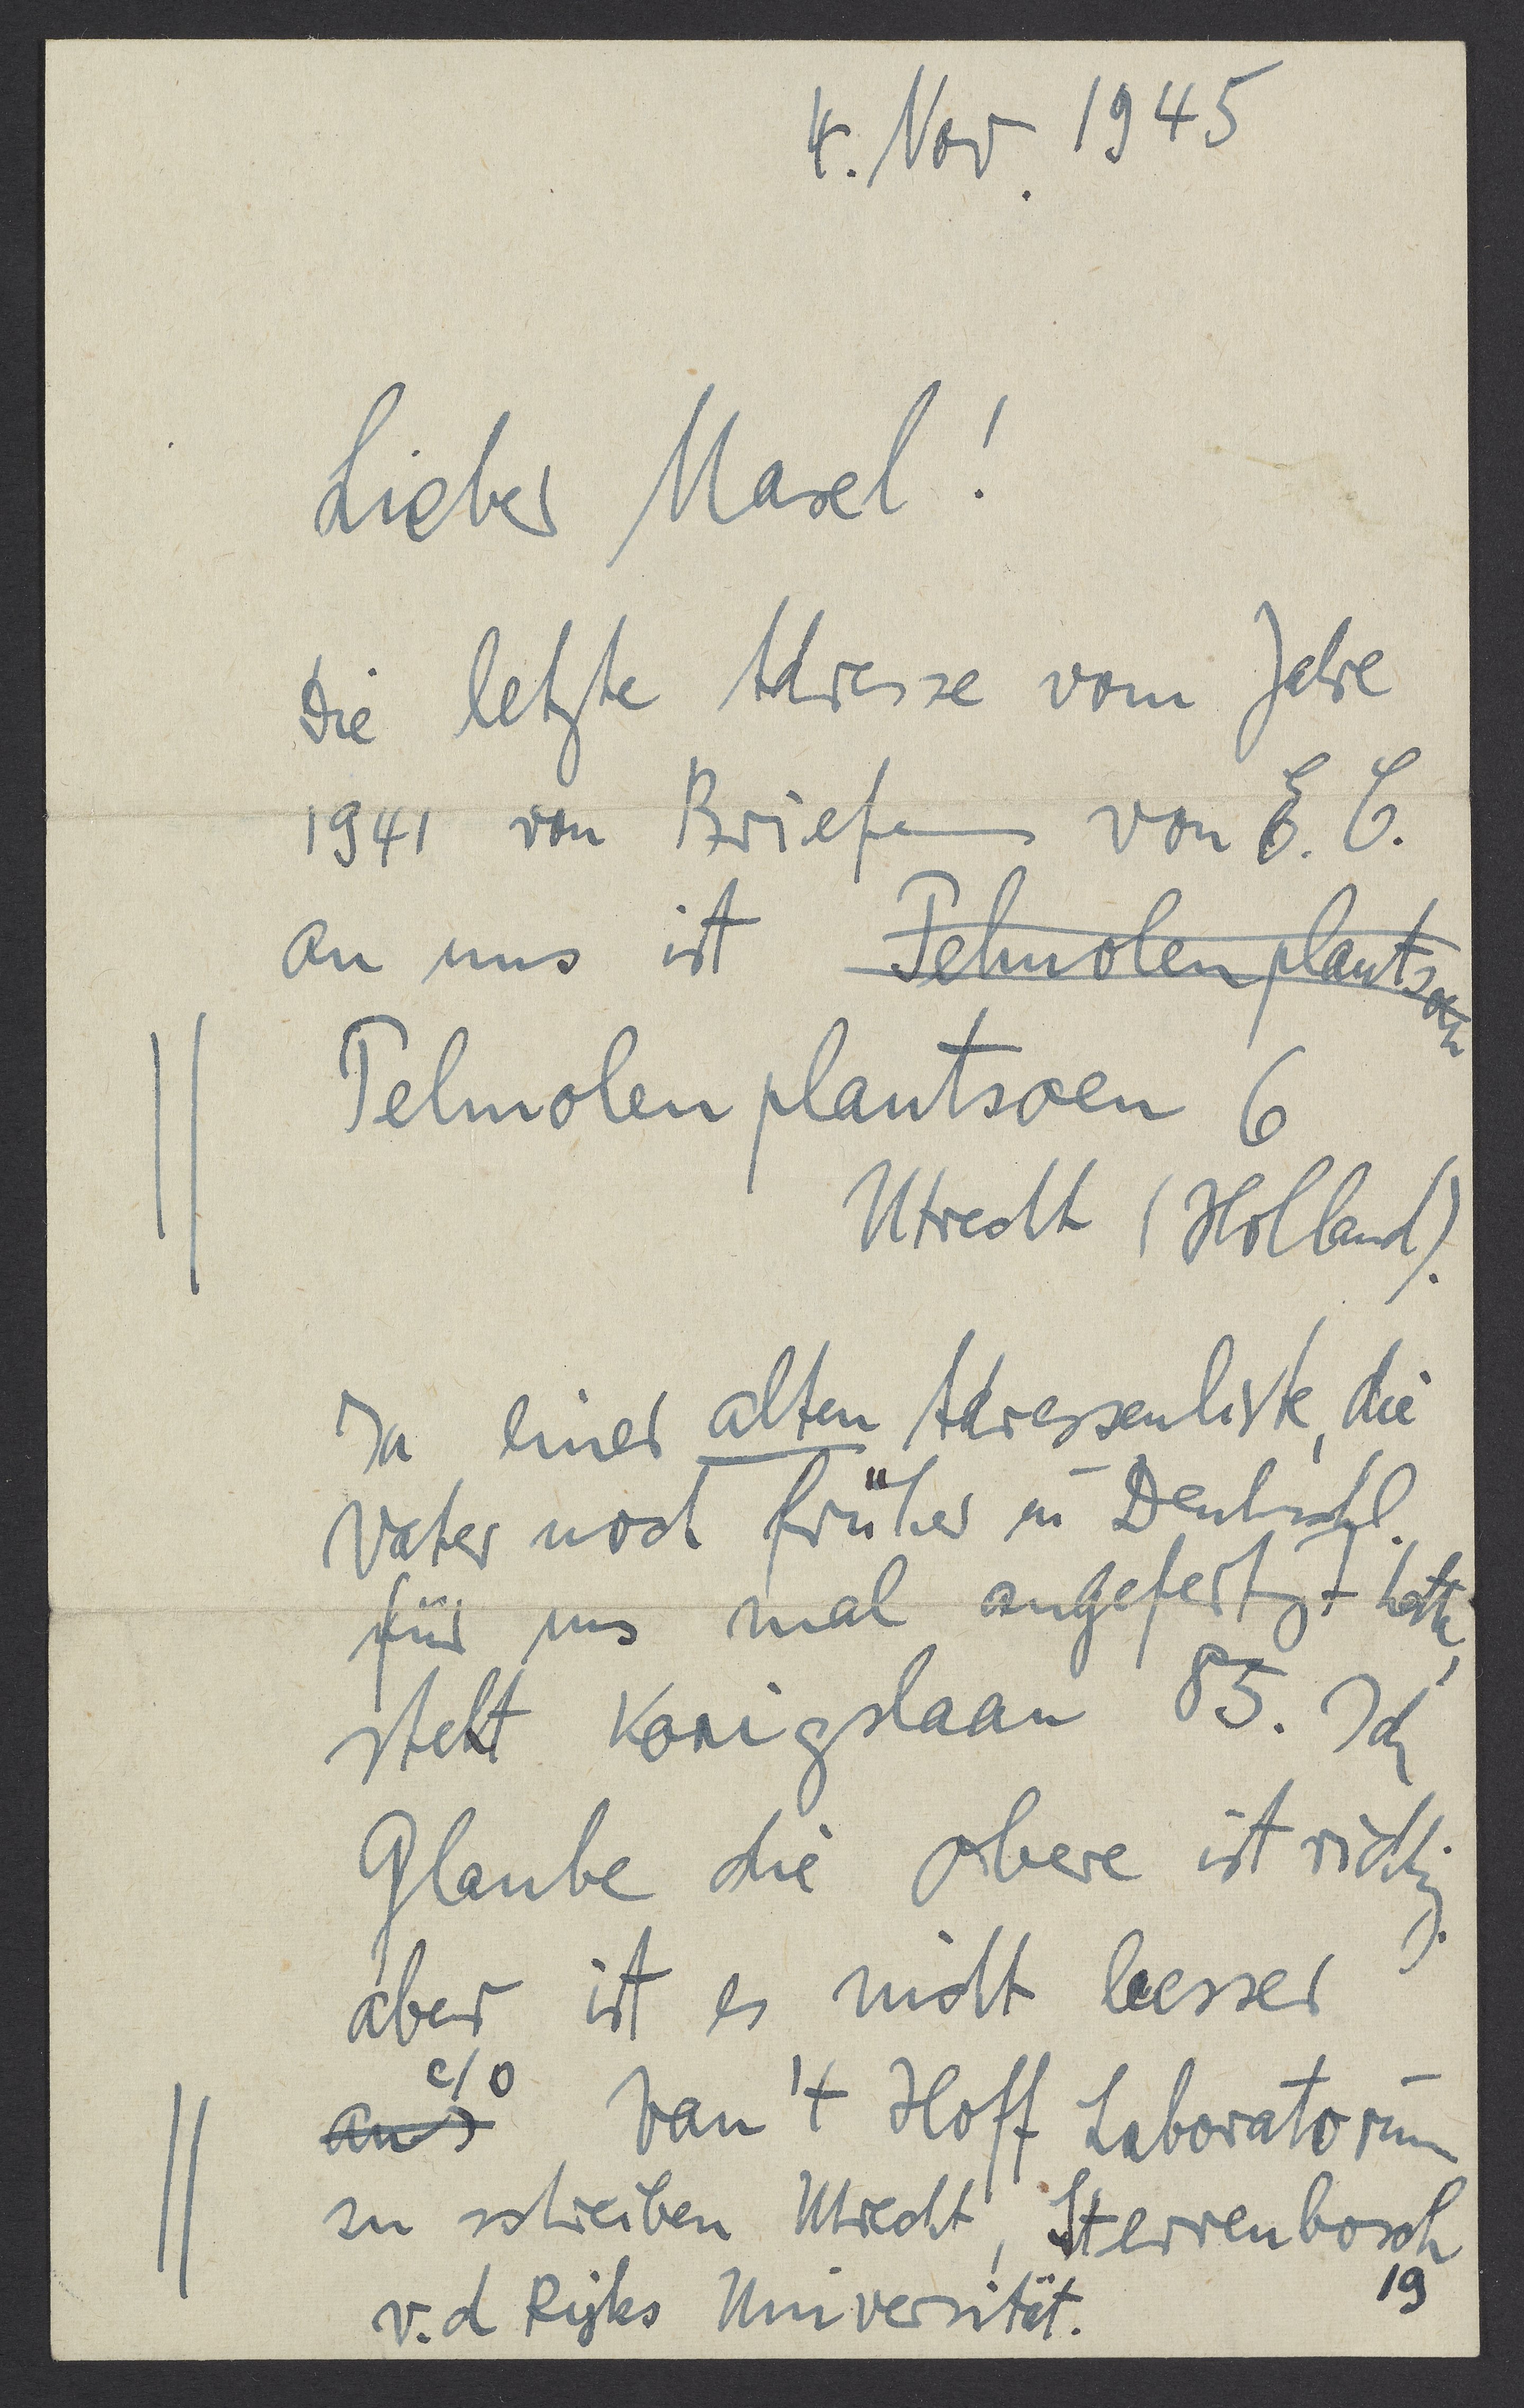 4. Nov. 1945
Lieber Masel!
Die letzte Adresse vom Jahre
1941 von Briefen von E. C.
an uns ist Pelmolenplantsoen
Pelmolenplantsoen 6
Utrecht (Holland).
In einer alten Adressenliste, die
Vater noch früher in Deutschl.
für uns mal angefertigt hatte,
steht Konigslaan 85. Ich
Glaube die obere ist richtig.
aber ist es nicht besser
an's c/o Van 't Hoff Laboratorium
zu schreiben Utrecht, Sterrenbosch
19
v. d Rijks Universität.